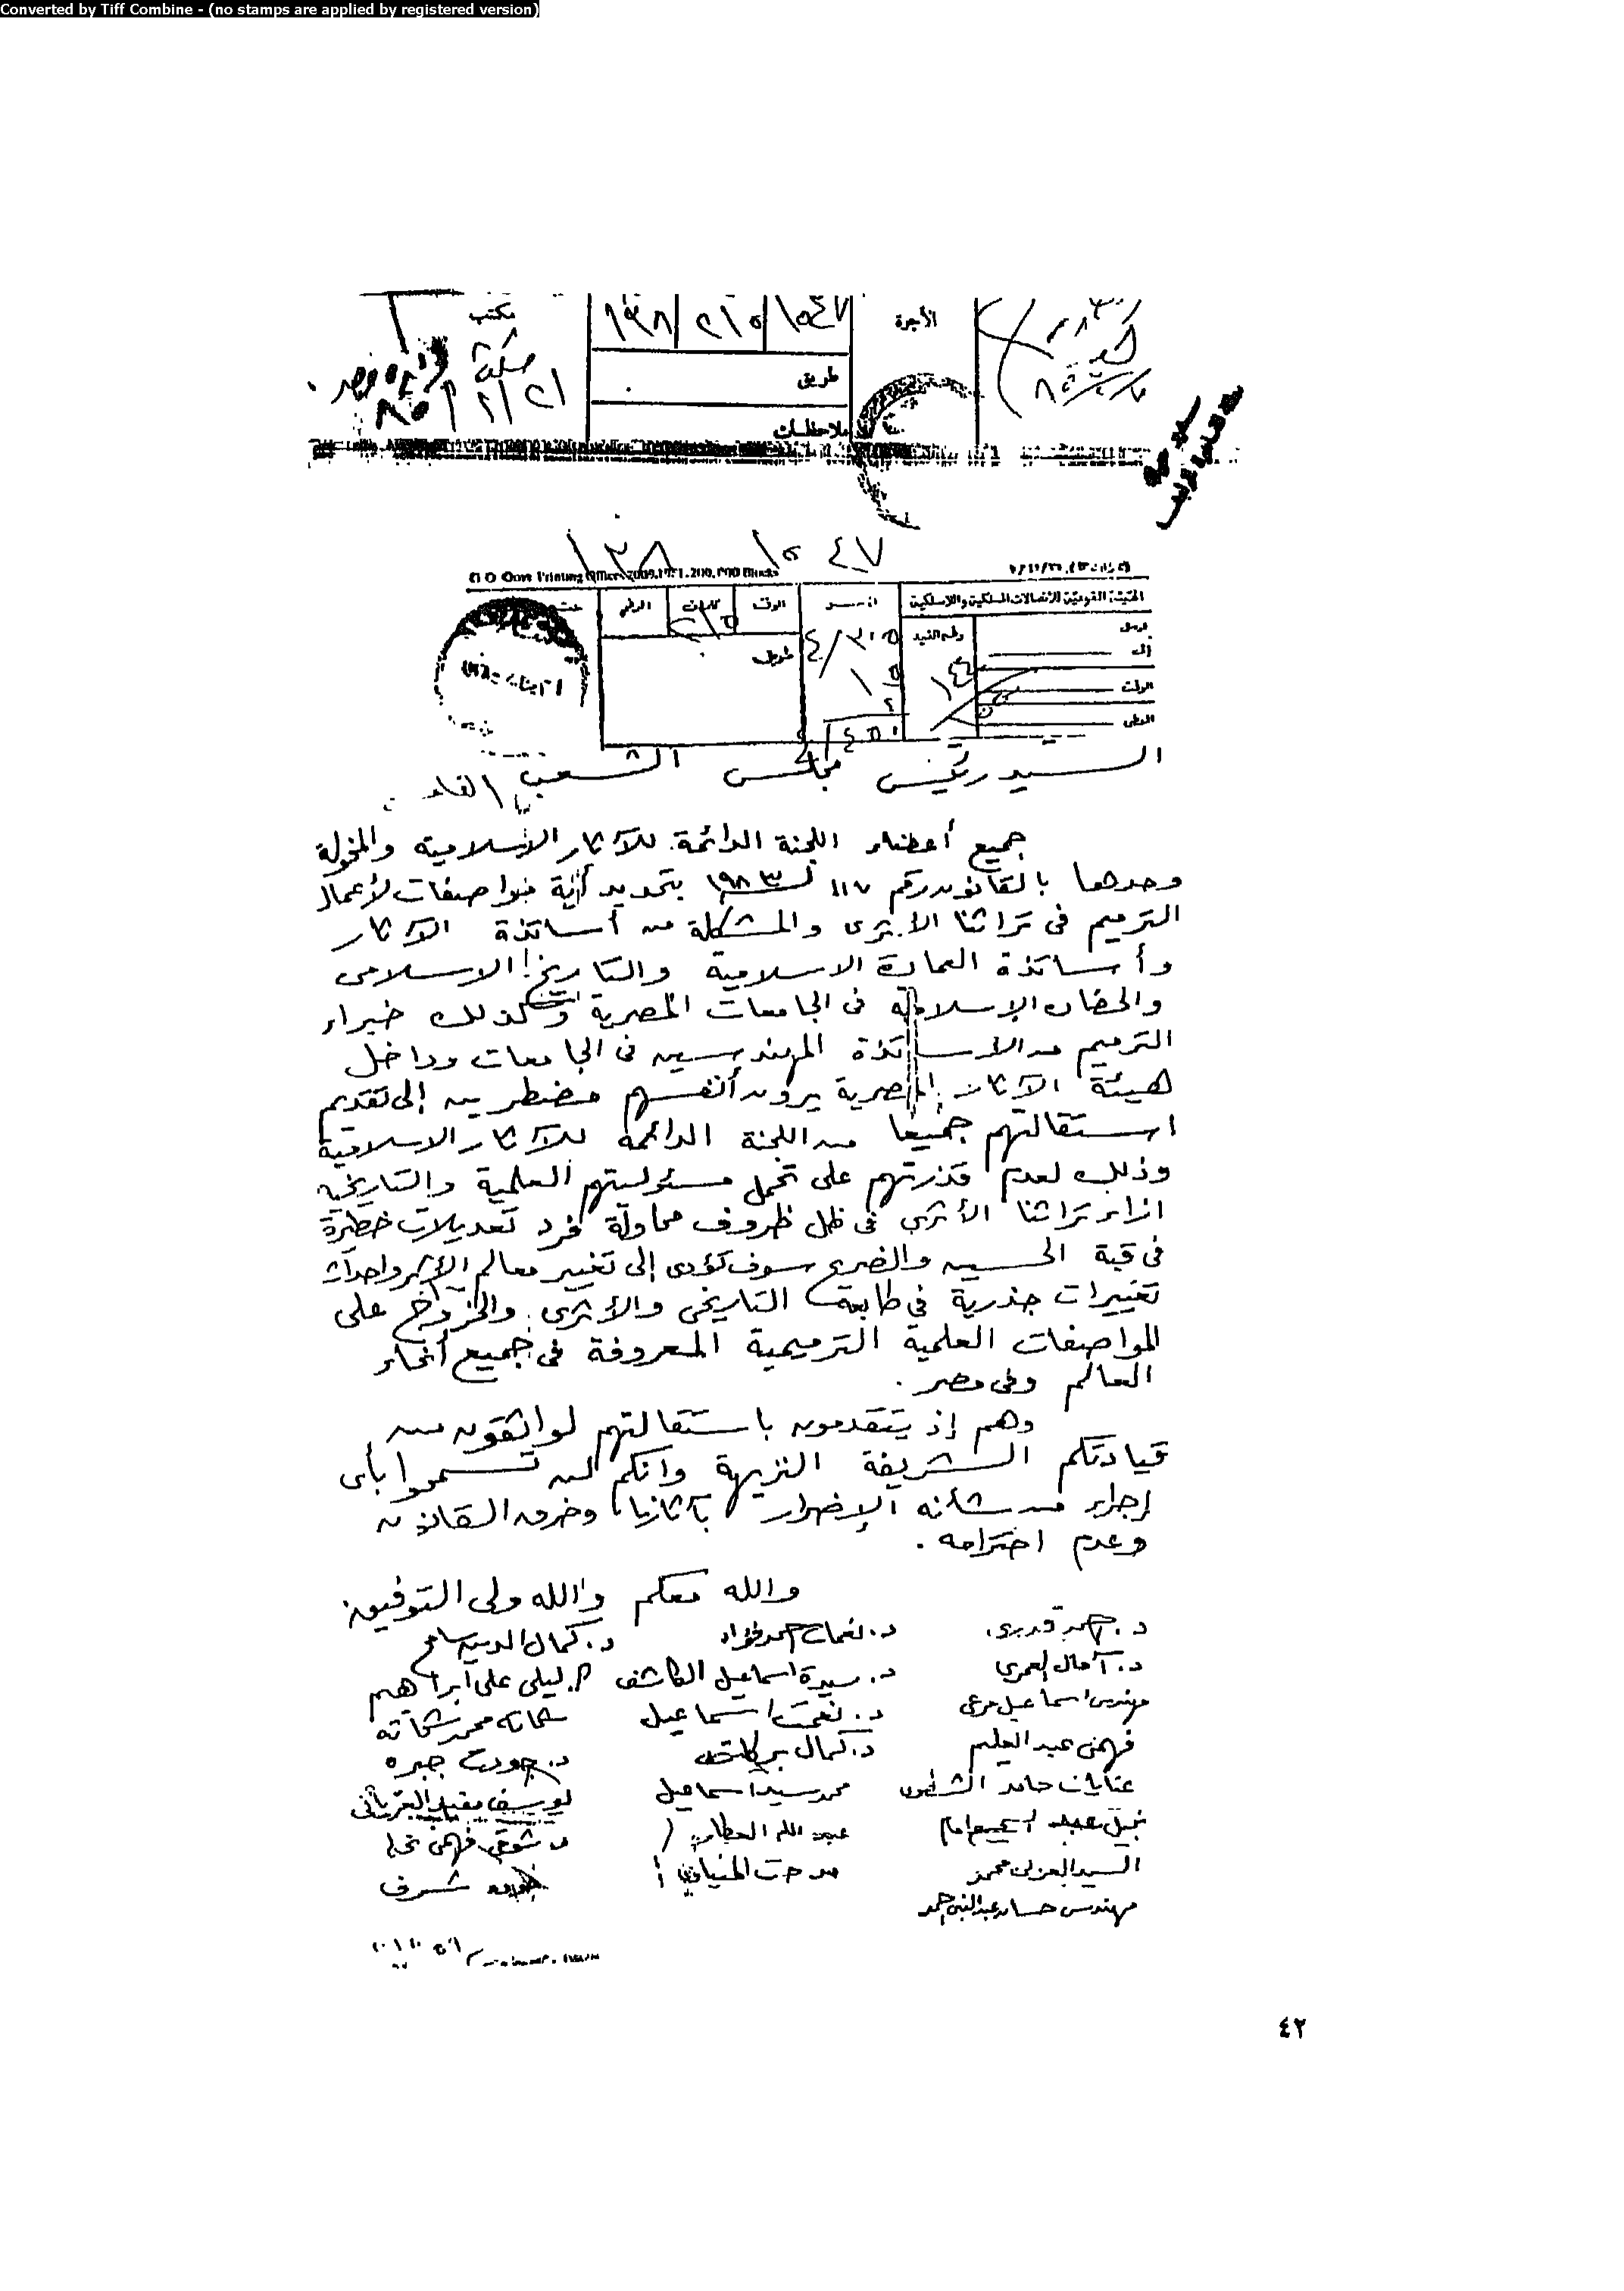 Converted by Tiff Combine - (no stamps are applied by registered version)
مكتب
١٥٤٧
الأجرة
طريق
ملاحظات
١٥٤٧
الهيئة القومية للاتصالات السلكية واللاسلكية
رقم القيد
الوقت
كلمات
الرقم
طريق
إلى
الوقت
السيد رئيس مجلس الشعب
جميع أعضاء اللجنة الدائمة للآثار الإسلامية والمخولة
وحدها بالقانون رقم ١١٧ لـ ١٩٨٣ بتحديد أية مواصفات لأعمال
الترميم فى تراثنا الأثرى والمشكلة من أساتذة الآثار
وأساتذة العمارة الاسلامية والتاريخ الاسلامى
والحضاره الإسلامية فى الجامعات المصرية وكذلك خبراء
الترميم من الاساتذة المهندسين فى الجامعات وداخل
هيئة الآثار المصرية يرون أنفسهم مضطرين إلى تقديم
استقالتهم جميعا من اللجنة الدائمة للآثار الاسلامية
وذلك لعدم قدرتهم على تحمل مسئوليتهم العلمية والتاريخية
ازاء تراثنا الأثرى فى ظل ظروف محاولة فرد تعديلات خطيرة
فى قبة الحسين والضريح سوف تؤدى إلى تغيير معالم الأثر واحداث
تغييرات جذرية فى طابعه التاريخى والأثرى والخروج على
المواصفات العلمية الترميمية المعروفة فى جميع أنحاء
العالم وفى مصر .
وهم إذ يتقدمون باستقالتهم لواثقون من
قيادتكم الشريفة النزيهة وانكم لن تسمحوا بأى
إجراء من شأنه الإضرار بآثارنا وخرق القانون
وعدم احترامه .
والله معكم والله ولى التوفيق
د. أحمد قدرى د. نعمات احمد فؤاد د. كمال الدين سامح
د. آمال العمرى د. سيدة اسماعيل الكاشف د. ليلى على ابراهيم
مهندس اسماعيل مرعى د. نعمت اسماعيل شحاته محمد شحاته
فهمى عبد العليم د. كمال بركات د. جودت جبره
عنايات حامد محمد سيد اسماعيل يوسف
نبيل عبد امام عبد الله العطار د شوقى فهمى
السيد العزب محمد مدحت المنياوى شرف
مهندس حسان عبد النبى احمد
٤٢